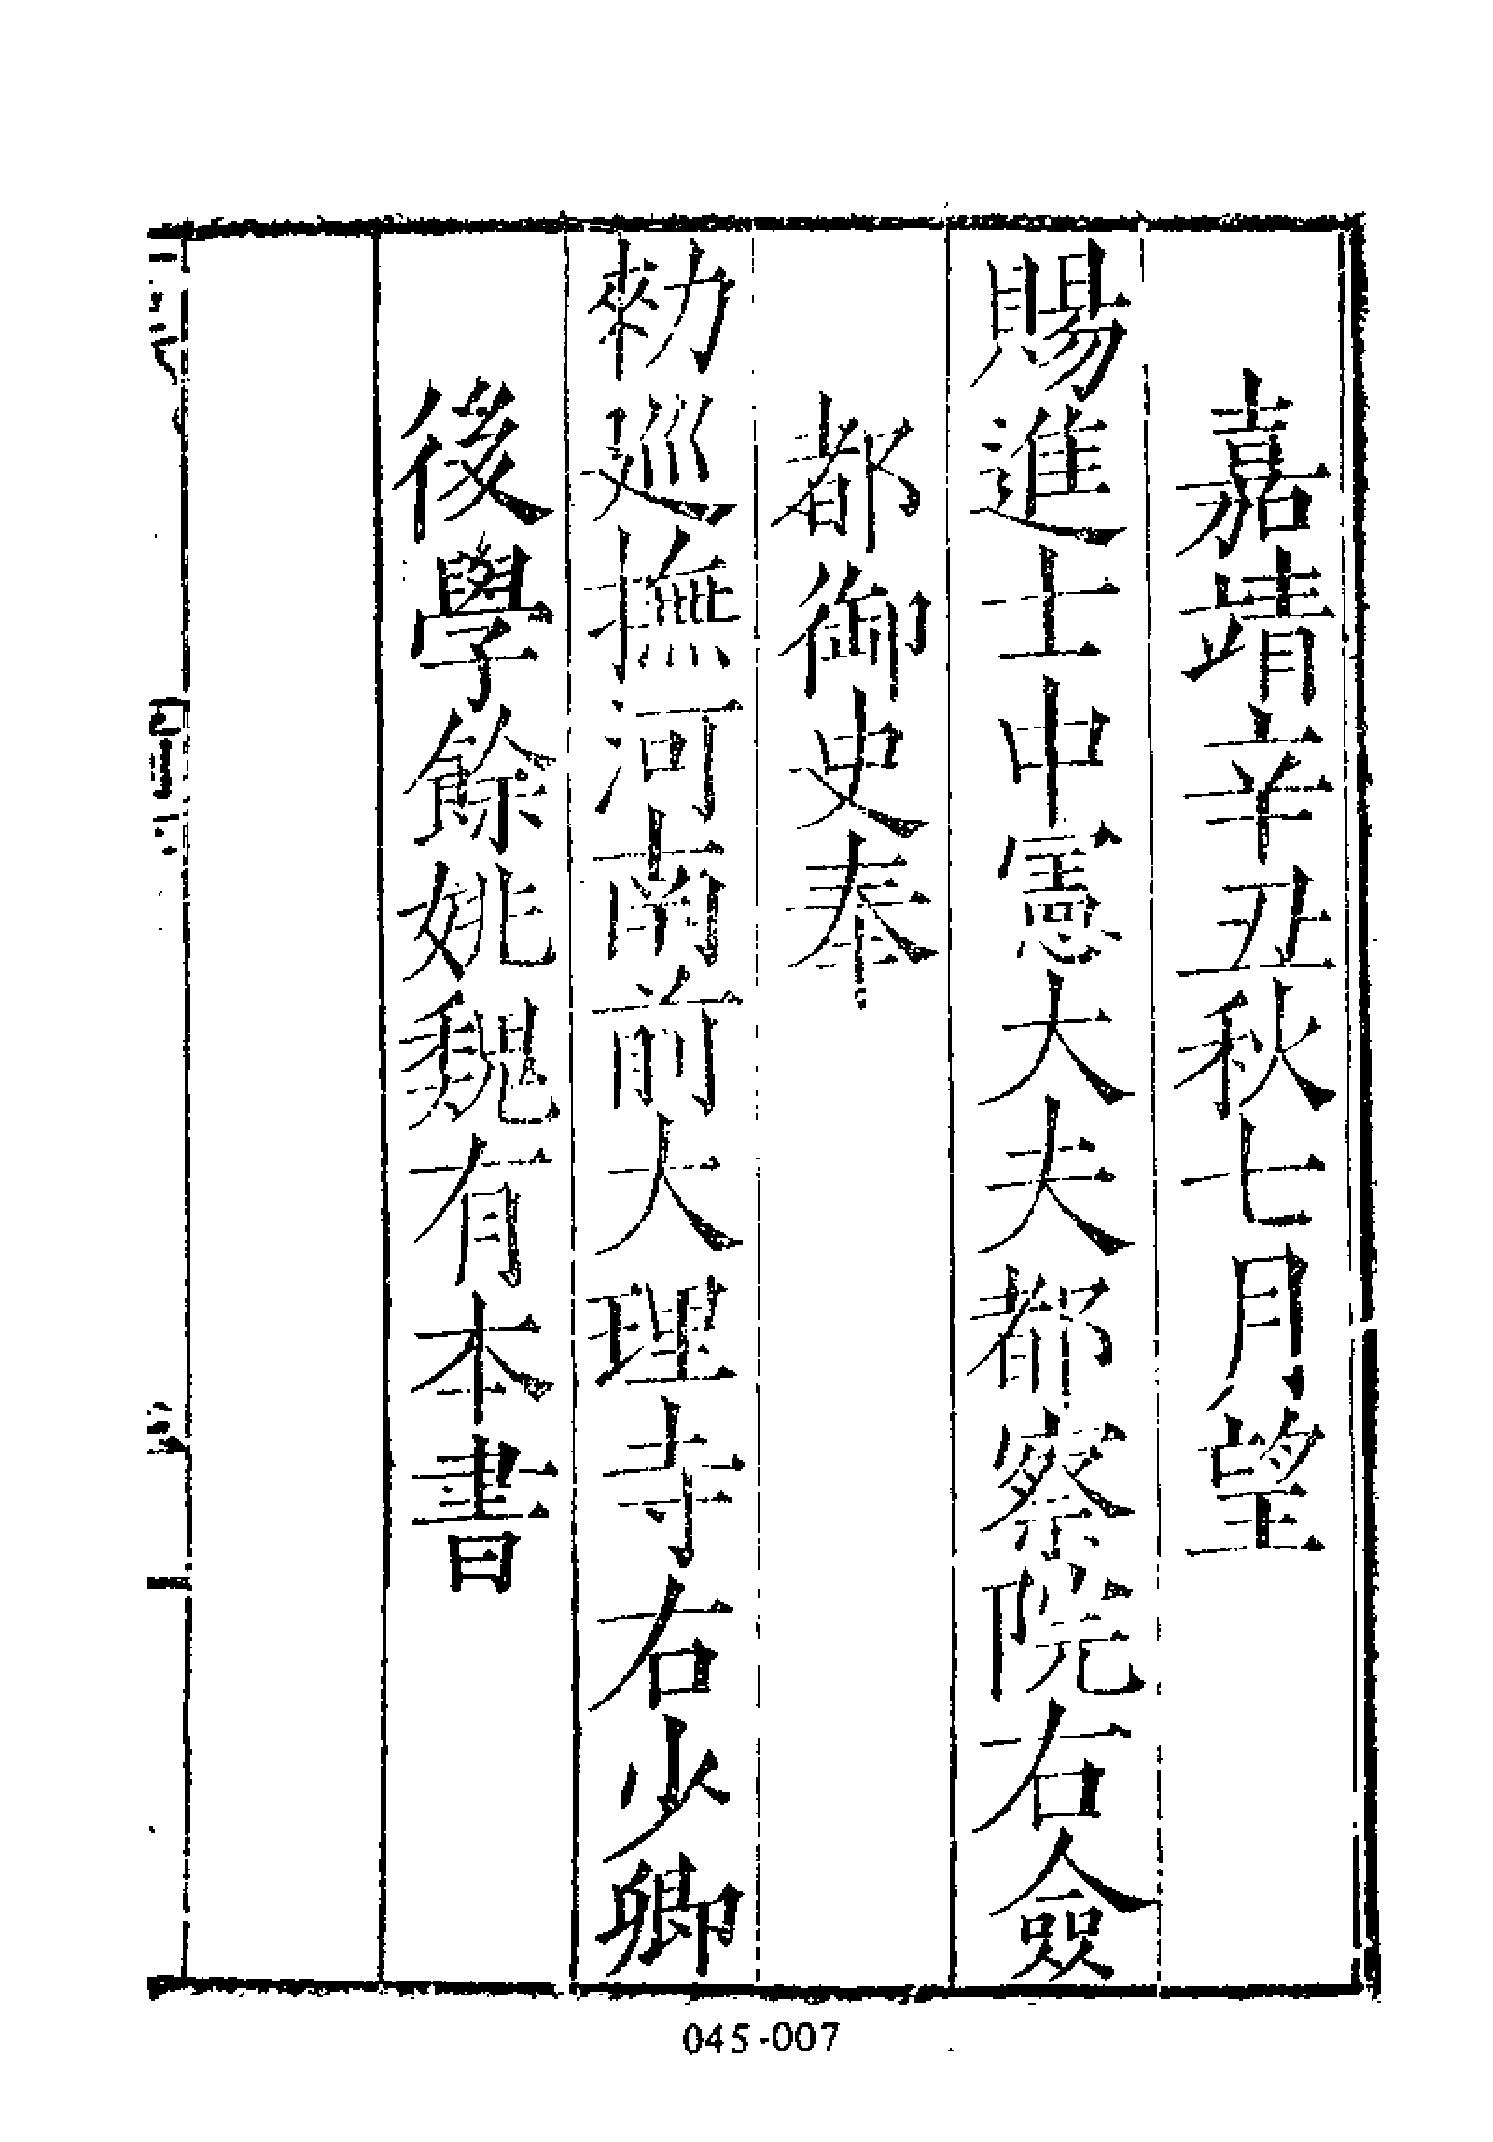 嘉靖辛丑秋七月望
賜進士中憲大夫都察院右僉
都御史奉
勑廵撫河南前大理寺右少卿
後學餘姚魏有本書
045-007